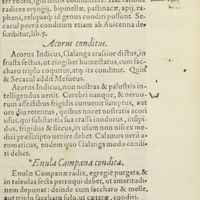 radices eryngij, bipinellæ, pastinacæ, apij,
raphani, reliquaq; id genus condiri possunt. Se-
cacul porrò conditum etiam ab Auicenna de-
scribitur, lib. 5.
Acorus conditus.
Acorus Indicus, Galanga crassior dictus, in
frusta sectus, ut zingiber humectatus, cum sac-
charo triplo coquitur, atq; ita conditur. Quin
& Secacul addit Mesueus.
Acorus Indicus, non nostras & palustris in-
telligendus uenit. Cerebri nanque, & neruo-
rum affectibus frigidis conuenit sumptus, aut
ore retentus, quibus noxius est
noster, seu Calamus uerus aromaticus, insi-
pidus, frigidus & siccus, in usum quod ex me-
dici prescripto uenire debet. Calamus uerò a-
romaticus, eodem cum Galanga modo condi-
ri debet.
Enula Campana condita.
Enulæ Campanæ radix, egregiè purgata, &
in taleolas secta percoqui debet, ut amaritudi-
nem deponat: deinde cum saccharo & melle,
aut triplo saccharo solo, ut cæteræ, condiri.